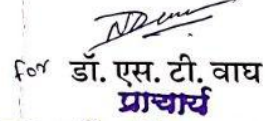 for डॉ. एस. टी. वाघ
प्राचार्य